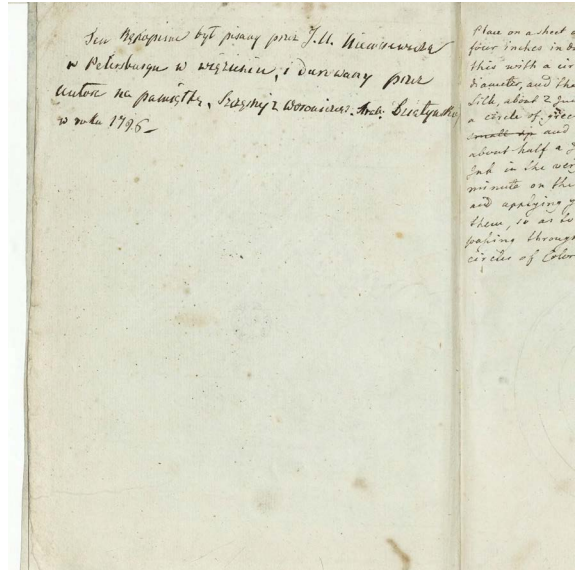 Ten Rękopism był pisany przez J. U. Niemcewicza
w Petersburgu w więzieniu, i darowany przez
autora na pamiątkę, Szczęsnej z Woroniczów. Dzialyńskiey
w roku 1796_
Place on a sheet
four inches in
this with a cir
diameter, and the
Silk, about 2
a circle of
and
about half a
Ink in the
minute on the
and applying
them, so as to
passing through
circles of Color